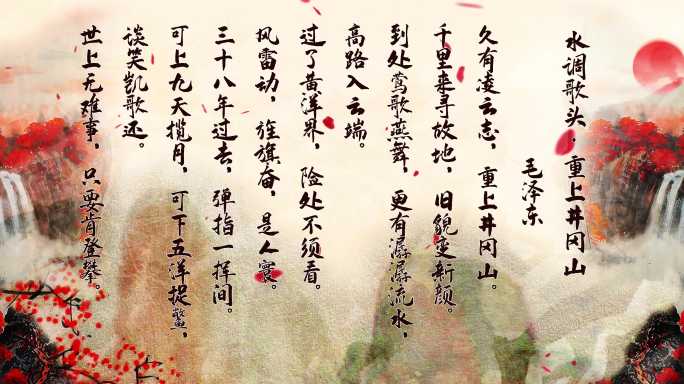 水调歌头·重上井冈山
毛泽东
久有凌云志，重上井冈山。
千里来寻故地，旧貌变新颜。
到处莺歌燕舞，更有潺潺流水，
高路入云端。
过了黄洋界，险处不须看。
风雷动，旌旗奋，是人寰。
三十八年过去，弹指一挥间。
可上九天揽月，可下五洋捉鳖，
谈笑凯歌还。
世上无难事，只要肯登攀。